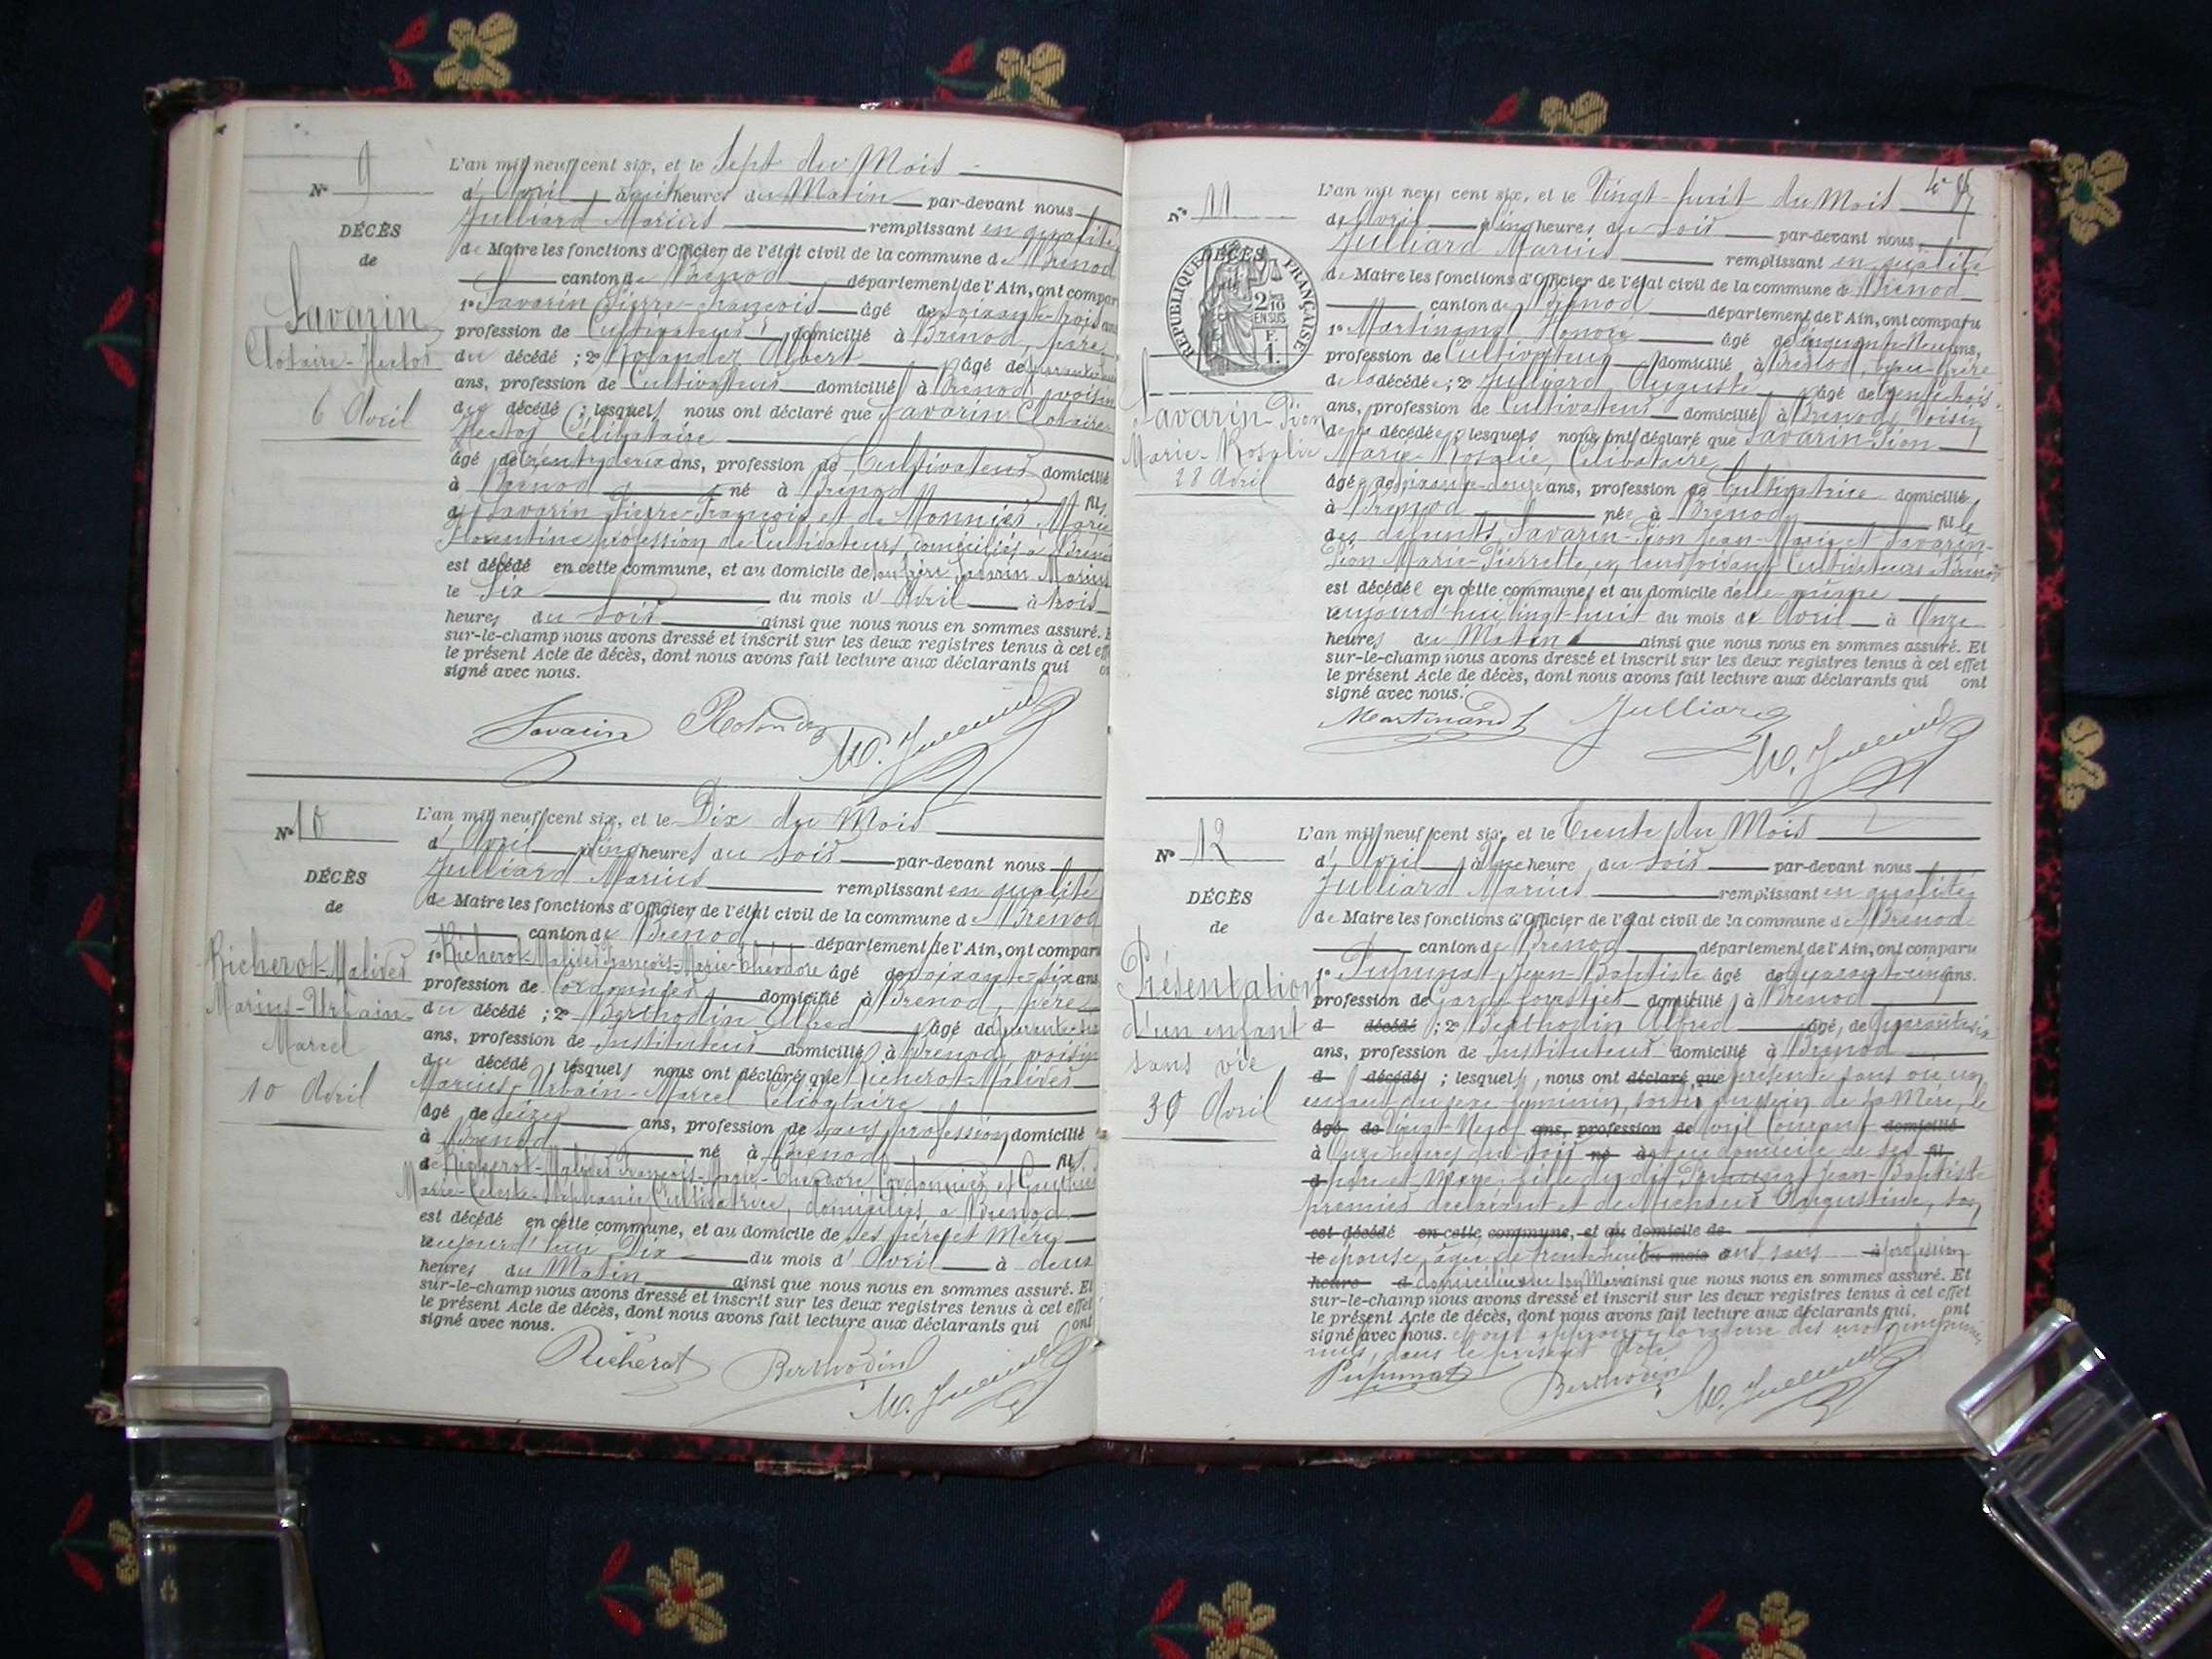 N° 9
DÉCÈS
de
Savarin
Clotaire-Hector
6 Avril
L'an mil neuf cent six, et le Sept du Mois
d'Avril à huit heures du Matin par-devant nous
Julliard Marius remplissant en qualité
de Maire les fonctions d'Officier de l'état civil de la commune de Brenod
canton de Brenod département de l'Ain, ont compar
1° Savarin Pierre-François âgé de soixante-trois ans
profession de Cultivateur, domicilié à Brenod, père
du décédé ; 2° Rolandez Albert âgé de
ans, profession de Cultivateur domicilié à Brenod voisin
du décédé ; lesquels nous ont déclaré que Savarin Clotaire
Hector Célibataire
âgé de trente deux ans, profession de Cultivateur domicilié
à Brenod né à Brenod fils
de Savarin Pierre-François et de Monnier Marie
Florentine profession de Cultivateurs domiciliés à Brenod
est décédé en cette commune, et au domicile de son frère Savarin Marius
le Six du mois d'Avril à trois
heures du Soir ainsi que nous nous en sommes assuré. E
sur-le-champ nous avons dressé et inscrit sur les deux registres tenus à cet eff
le présent Acte de décès, dont nous avons fait lecture aux déclarants qui on
signé avec nous.
Savarin Rolandez M. Julliard
N° 10
DÉCÈS
de
Richerot-Malivès
Marius-Urbain-
Marcel
10 Avril
L'an mil neuf cent six, et le Dix du Mois
d'Avril à Cinq heures du Soir par-devant nous
Julliard Marius remplissant en qualité
de Maire les fonctions d'Officier de l'état civil de la commune de Brenod
canton de Brenod département de l'Ain, ont comparu
1° Richerot-Malivès François-Marie-Théodore âgé de soixante-six ans
profession de Cordonnier, domicilié à Brenod, père
du décédé ; 2° Berthodin Alfred âgé de quarante-six
ans, profession de Instituteur domicilié à Brenod, voisin
du décédé ; lesquels nous ont déclaré que Richerot-Malivès
Marius-Urbain-Marcel Célibataire
âgé de seize ans, profession de sans profession domicilié
à Brenod né à Brenod fils
de Richerot-Malivès François-Marie-Théodore Cordonnier et
Marie-Céleste-Stéphanie, Cultivatrice, domiciliés à Brenod
est décédé en cette commune, et au domicile de ses père et Mère
le aujourd'hui Dix du mois d'Avril à deux
heures du Matin ainsi que nous nous en sommes assuré. Et
sur-le-champ nous avons dressé et inscrit sur les deux registres tenus à cet effet
le présent Acte de décès, dont nous avons fait lecture aux déclarants qui ont
signé avec nous.
Richerot Berthodin M. Julliard
N° 11
RÉPUBLIQUE FRANÇAISE
DÉCÈS
2/10 EN SUS
F. 1.
Savarin-Pion
Marie-Rosalie
28 Avril
L'an mil neuf cent six, et le Vingt-huit du Mois
d'Avril à Cinq heures du Soir par-devant nous,
Julliard Marius remplissant en qualité
de Maire les fonctions d'Officier de l'état civil de la commune de Brenod
canton de Brenod département de l'Ain, ont comparu
1° Martinand Honoré âgé de Cinquante-Neuf ans,
profession de Cultivateur domicilié à Brenod, beau-frère
de la décédée ; 2° Julliard Auguste âgé de trente trois
ans, profession de Cultivateur domicilié à Brenod, Voisin
de la décédée ; lesquels nous ont déclaré que Savarin-Pion
Marie-Rosalie, Célibataire
âgée de soixante-douze ans, profession de Cultivatrice domiciliée
à Brenod née à Brenod fille
des défunts Savarin-Pion Jean-Marie et Savarin-
Pion Marie-Pierrette, en leur vivant Cultivateurs à Brenod
est décédée en cette commune, et au domicile d'elle-même
le aujourd'hui Vingt-huit du mois de Avril à Onze
heures du Matin ainsi que nous nous en sommes assuré. Et
sur-le-champ nous avons dressé et inscrit sur les deux registres tenus à cet effet
le présent Acte de décès, dont nous avons fait lecture aux déclarants qui ont
signé avec nous.
Martinand Julliard
M. Julliard
N° 12
DÉCÈS
de
Présentation
d'un enfant
sans vie
30 Avril
L'an mil neuf cent six, et le Trente du Mois
d'Avril à une heure du Soir par-devant nous
Julliard Marius remplissant en qualité
de Maire les fonctions d'Officier de l'état civil de la commune de Brenod
canton de Brenod département de l'Ain, ont comparu
1° Jean-Baptiste âgé de Quarante cinq ans.
profession de Garde forestier domicilié à Brenod
d décédé ; 2° Berthodin Alfred âgé de Quarante six
ans, profession de Instituteur domicilié à Brenod
d décédé ; lesquels, nous ont déclaré que présenté sans vie un
enfant du sexe féminin, sorti du sein de sa Mère, le
âgé de Vingt-Neuf ans, profession de Avril Courant domicilié
à Onze heures du soir né à au domicile de ses fil
d père et Mère fille du dit Jean-Baptiste
premier déclarant et de Michaud Augustine, son
est décédé en cette commune, et au domicile de
le épouse, âgée de trente huit du mois ans sans à profession
heure d domiciliée avec son Mari ainsi que nous nous en sommes assuré. Et
sur-le-champ nous avons dressé et inscrit sur les deux registres tenus à cet effet
le présent Acte de décès, dont nous avons fait lecture aux déclarants qui, ont
signé avec nous. et ont approuvé la rature des mots
nuls, dans le présent Acte
Berthodin M. Julliard